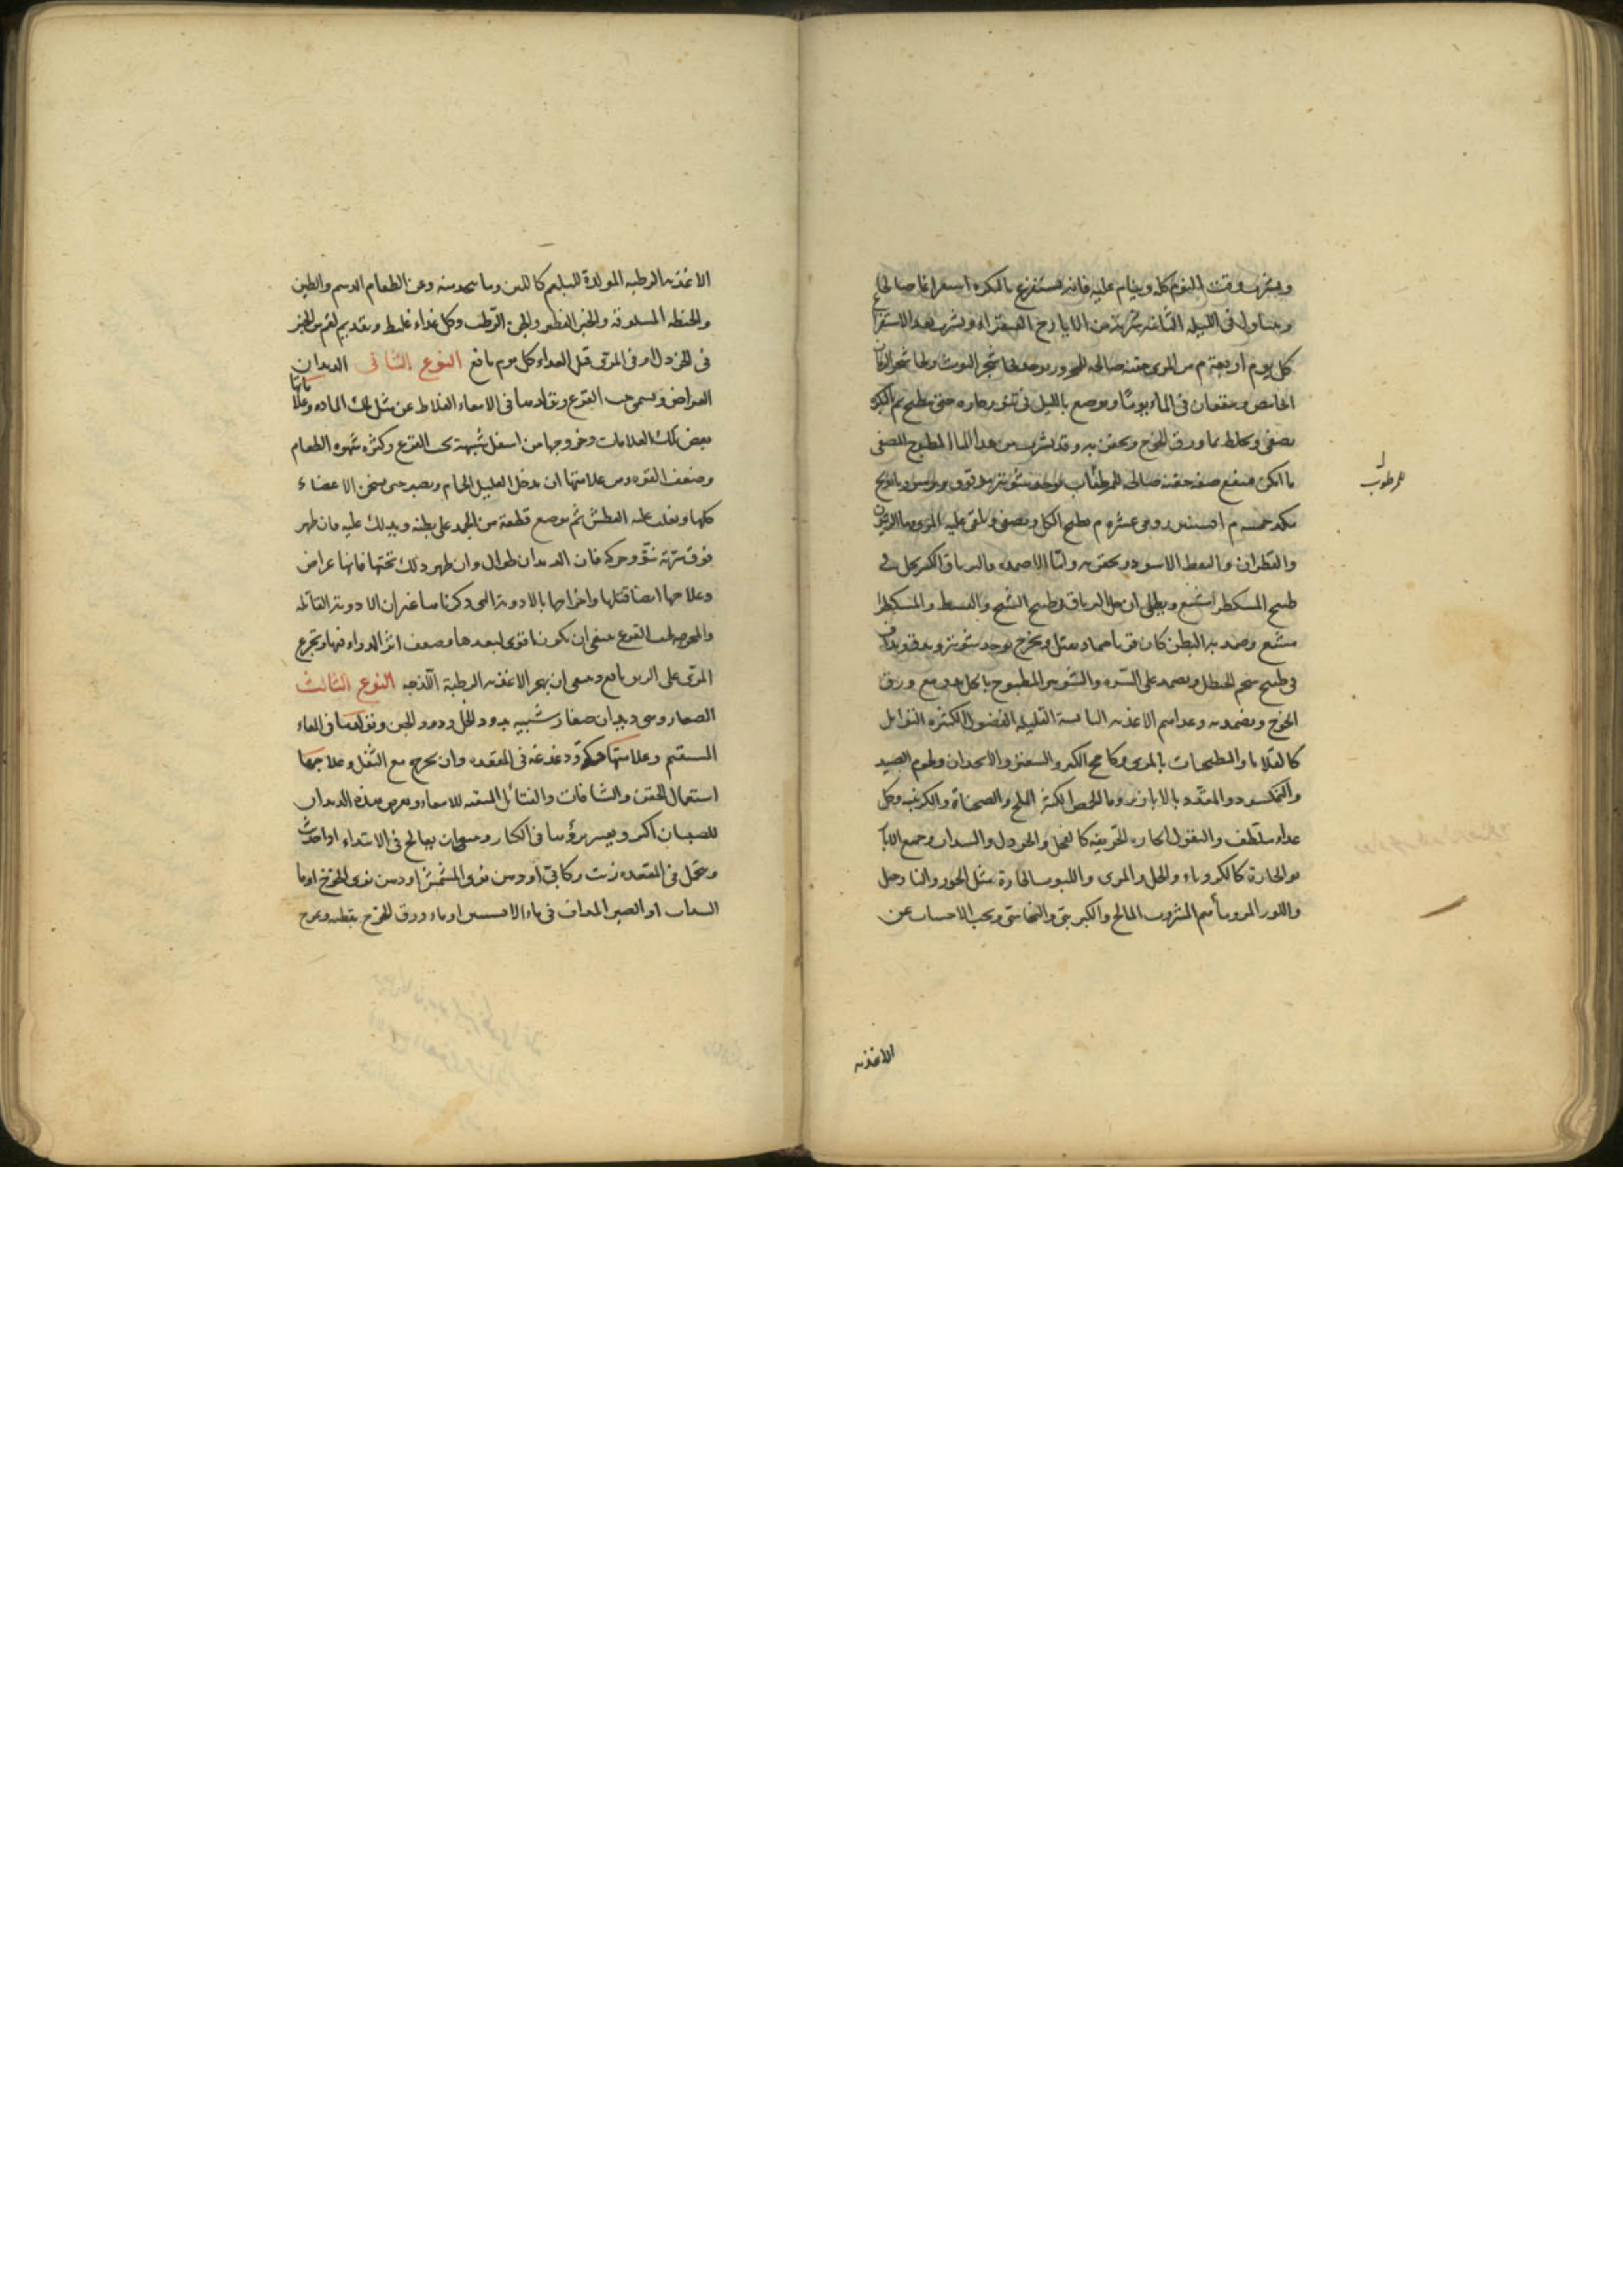 ويشرب وقت النوم كله وينام عليه فانه يستفرغ بالبكره استفراغا صالحا
ويتناول فى الليله الثانيه شربة من الايارج الفيقرا ويشرب بعد الاستفراغ
كل يوم اربعة م من المرى حقنة صالحه للمحرور يوخذ لحا شجر التوت ولحا شجر الرمان
الحامض وينقعان فى الماء يومًا ويوضع بالليل فى تنور حاره حتى يطبخ ثم بالبكره
يصفى ويخلط بماورق الخوخ ويحقن به وقد يشرب من هذا الماء المطبوخ المصفى
ما امكن فينفع صفه حقنه صالحه للمرطوب يوخذ شونيز
للمرطوب
يطبخ الكل ويصفى ويلقى عليه المرى
والقطران والنفط الاسود ويحقن به واما الاضمده فالترياق الكبير يحل فى
طبيخ
ويضمد به البطن كان قويا
فى طبيخ شحم الحنظل ويضمد على السره والشونيز المطبوخ بالخل مع ورق
الخوخ ويضمد به وغذاهم الاغذيه اليابسة القليله الفضول الكثيره التوابل
كالقلايا والمطبخات بالمرى وكامخ الكبر والسعتر والانجدان ولحوم الصيد
والنمكسود والمقدد بالابازير وماالحمص الكثير الملح والصحناة والكرنبيه وكل
غداء ملطف والبقول الحاره الحريفه كالفجل والخردل والسداب وجميع الابا
زير الحارة كالكرويا والخل والمرى واللبوب الحارة مثل الجوز والنارجيل
واللوز المر وماهم المشروب المالح والكبريتى والنحاسى ويجب الاحتساب عن
الاغذيه
الاغذيه الرطبه المولدة للبلغم كاللبن وما يتخذ منه وعن الطعام الدسم والطين
والحنطه المسلوقه والخبز الفطير والجبن الرطب وكل غذاء غليظ وتقديم لقم من الخبز
فى الخردل او فى المرى قبل الغداء كل يوم نافع النوع الثانى الديدان
العراض ويسمى حب القرع وتولدها فى الامعاء الغلاظ عن مثل تلك الماده وعلاماتها
بعض تلك العلامات وخروجها من اسفل شبيهة بحب القرع وكثره شهوه الطعام
وضعف القوه ومن علامتها ان يدخل العليل الحمام ويصبر حتى يسخن الاعضاء
كلها ويغلب عليه العطش ثم يوضع قطعة من الجمد على بطنه ويدلك عليه فان ظهر
فوق سرته نتو وحركة فان الديدان طوال وان ظهر ذلك تحتها فانها عراض
وعلاجها ايضا قتلها واخراجها بالادوية التى ذكرناها غير ان الادوية القاتله
والمخرجه لحب القرع ينبغى ان يكون اقوى لبعدها وضعف اثر الدواء فيها وتجرع
المرى على الريق نافع وينبغى ان يهجر الاغذيه الرطبة اللزجه النوع الثالث
الصغار وهى ديدان صغار شبيهه بدود الخل ودود الجبن وتولدها فى المعاء
المستقيم وعلامتها حكة ودغدغة فى المقعده وان يخرج مع الثفل وعلاجها
استعمال الحقن والشافات والفتائل المنقيه للامعاء ويعرض هذه الديدان
للصبيان اكثر ويعسر برؤها فى الكبار وينبغى ان يعالج فى الابتداء اول حدوث
ويتحمل فى المقعده زيت ركابى او دهن نوى المشمش او دهن نوى الخوخ او ما
السداب او الصبر المداف فى ماء الافسنتين او ماء ورق الخوخ بقطنه ويخرج